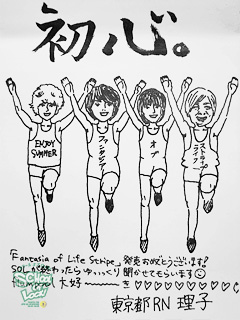 初心。
ENJOY
SUMMER
ファンタジア
オブ
ストライプ
ライフ
「Fantasia of Life Stripe」発売おめでとうございます！
SOLが終わったらゆっくり聞かせてもらいます☺
大好〜〜〜き♡♡♡♡♡♡♡♡♡
東京都 RN 理子
SCHOOL
OF
LOCK!